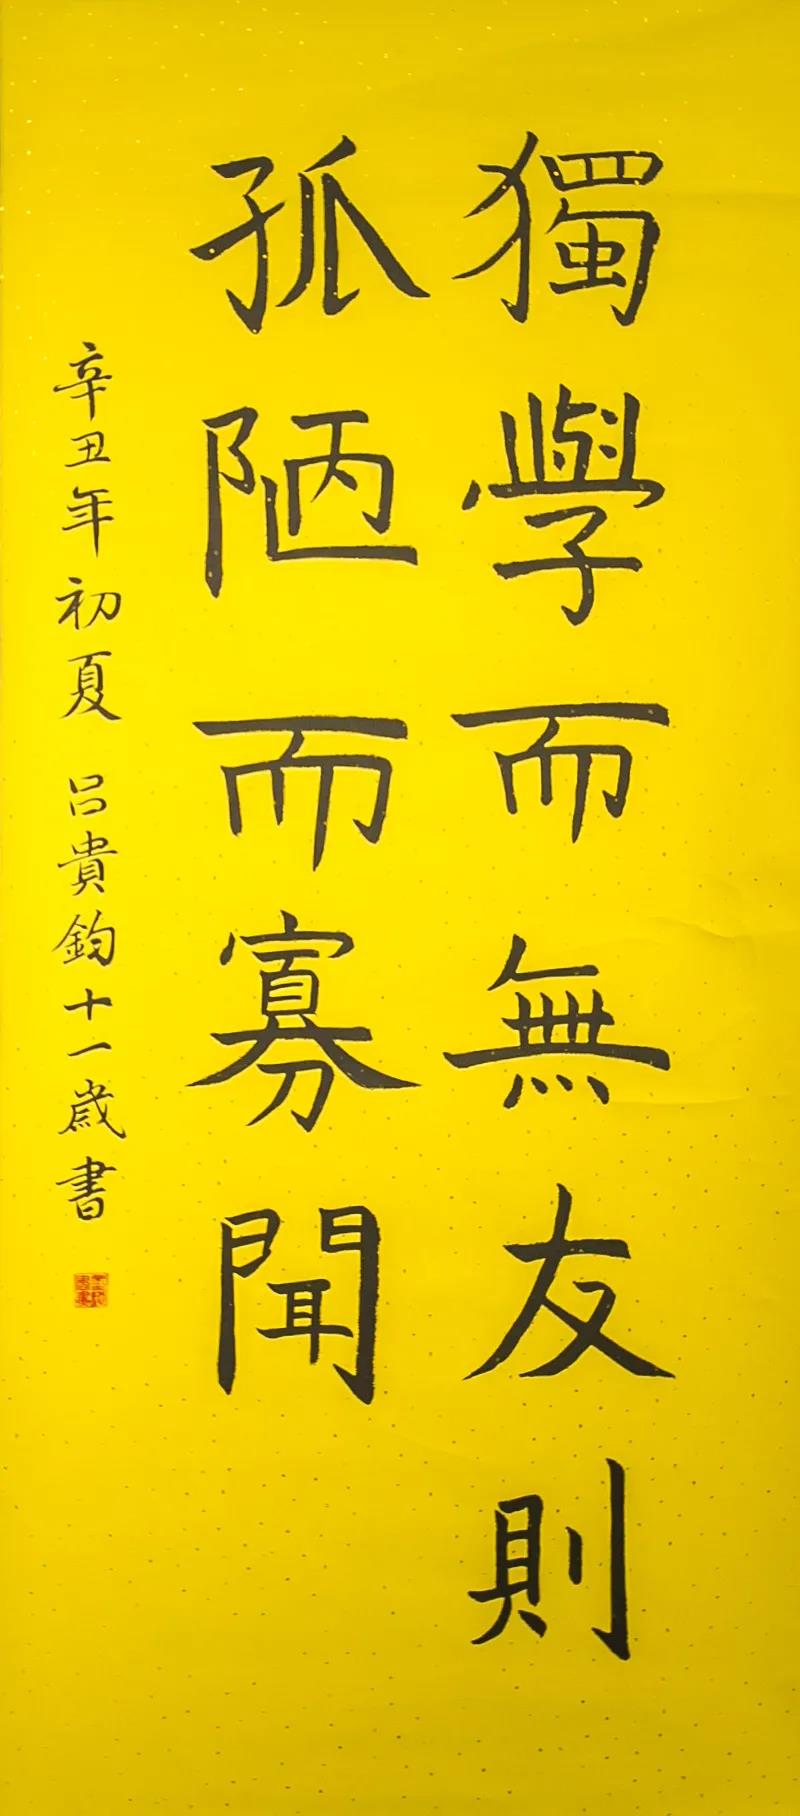 獨學而無友則
孤陋而寡聞
辛丑年初夏 呂貴鈞十一歲書